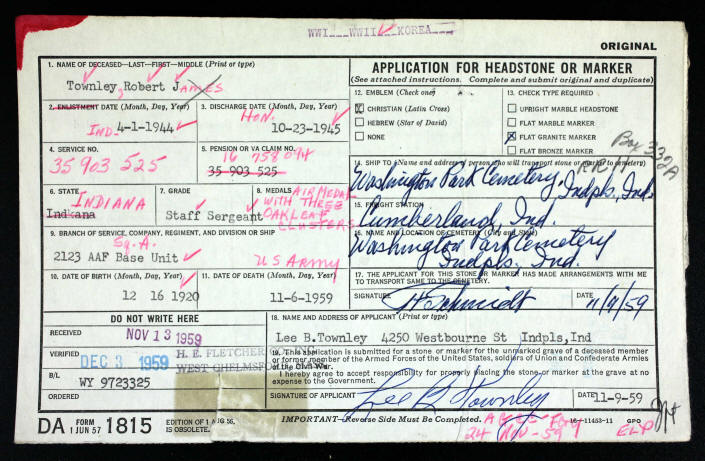 WWI___WWII___KOREA___
ORIGINAL
1. NAME OF DECEASED—LAST—FIRST—MIDDLE (Print or type)
Townley, Robert JAMES
2. ENLISTMENT DATE (Month, Day, Year)
IND. 4-1-1944
3. DISCHARGE DATE (Month, Day, Year)
HON.
10-23-1945
4. SERVICE NO.
35 903 525
5. PENSION OR VA CLAIM NO.
16 758 094
35 903 525
6. STATE
INDIANA
Indiana
7. GRADE
Staff Sergeant
8. MEDALS
AIR MEDAL
WITH THREE
OAK LEAF
CLUSTERS
9. BRANCH OF SERVICE, COMPANY, REGIMENT, AND DIVISION OR SHIP
Sq. A.
2123 AAF Base Unit
US ARMY
10. DATE OF BIRTH (Month, Day, Year)
12 16 1920
11. DATE OF DEATH (Month, Day, Year)
11-6-1959
APPLICATION FOR HEADSTONE OR MARKER
(See attached instructions. Complete and submit original and duplicate)
12. EMBLEM (Check one)
X CHRISTIAN (Latin Cross)
HEBREW (Star of David)
NONE
13. CHECK TYPE REQUIRED
UPRIGHT MARBLE HEADSTONE
FLAT MARBLE MARKER
X FLAT GRANITE MARKER
FLAT BRONZE MARKER
Box 332A
RR 11
14. SHIP TO (Name and address of person who will transport stone or marker to cemetery)
Washington Park Cemetery, Indpls., Ind.
15. FREIGHT STATION
Cumberland, Ind.
16. NAME AND LOCATION OF CEMETERY (City and State)
Washington Park Cemetery
Indpls., Ind.
17. THE APPLICANT FOR THIS STONE OR MARKER HAS MADE ARRANGEMENTS WITH ME
TO TRANSPORT SAME TO THE CEMETERY.
SIGNATURE
Schmidt
DATE
11/9/59
DO NOT WRITE HERE
RECEIVED
NOV 13 1959
VERIFIED
DEC 3 1959
H. E. FLETCHER
WEST CHELMSFORD
B/L
WY 9723325
ORDERED
18. NAME AND ADDRESS OF APPLICANT (Print or type)
Lee B.Townley 4250 Westbourne St Indpls,Ind
19. This application is submitted for a stone or marker for the unmarked grave of a deceased member
or former member of the Armed Forces of the United States, soldiers of Union and Confederate Armies
of the Civil War.
I hereby agree to accept responsibility for properly placing the stone or marker at the grave at no
expense to the Government.
SIGNATURE OF APPLICANT
Lee B. Townley
DATE
11-9-59
DA FORM 1 JUN 57 1815
EDITION OF 1 AUG 56,
IS OBSOLETE.
IMPORTANT—Reverse Side Must Be Completed.
16—11453-11 GPO
24 NOV-59